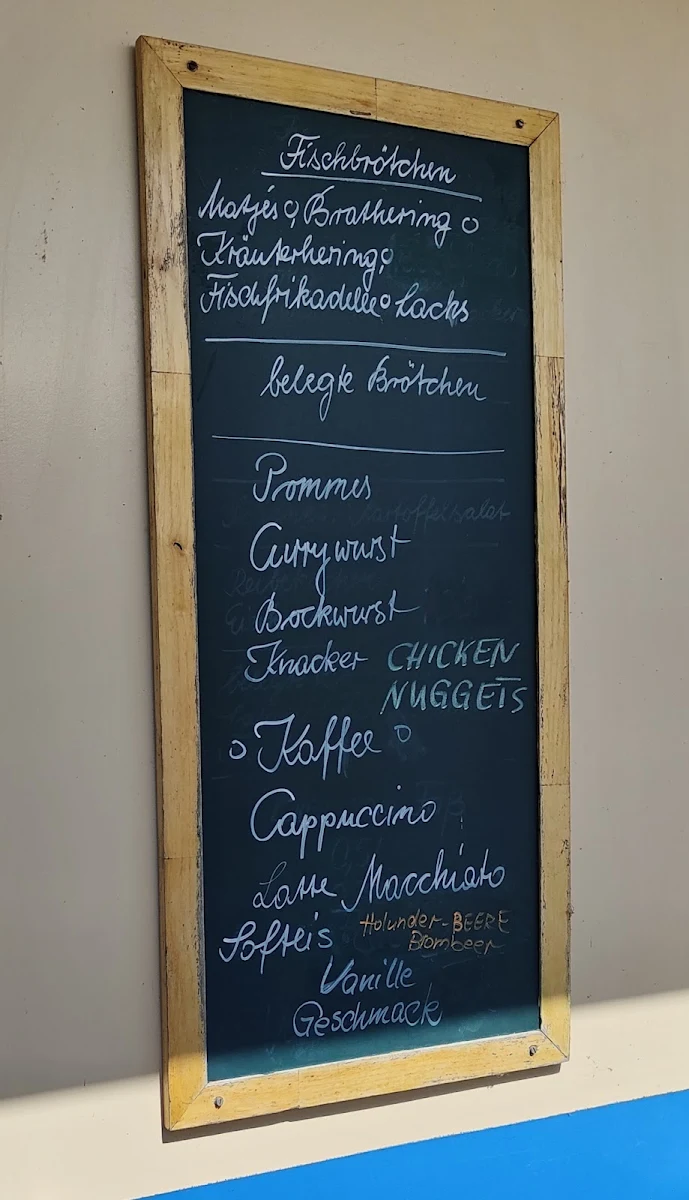 Fischbrötchen
Matjes, Brathering
Kräuterhering,
Fischfrikadelle Lachs
belegte Brötchen
Pommes
Currywurst
Bockwurst
Knacker CHICKEN
NUGGETS
Kaffee
Cappuccino
Latte Macchiato
Softeis Holunder-BEERE
Brombeer
Vanille
Geschmack